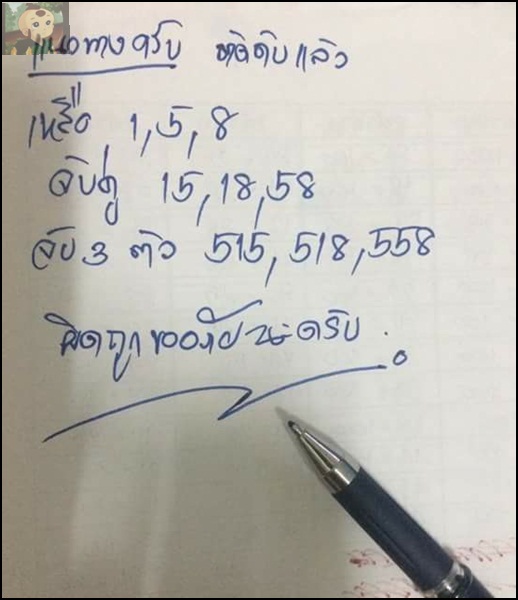 แนวทางครับ หักดิบแล้ว
เหลือ 1,5,8
จับคู่ 15,18,58
จับ 3 ตัว 515,518,558
ผิดถูกขออภัยนะครับ.